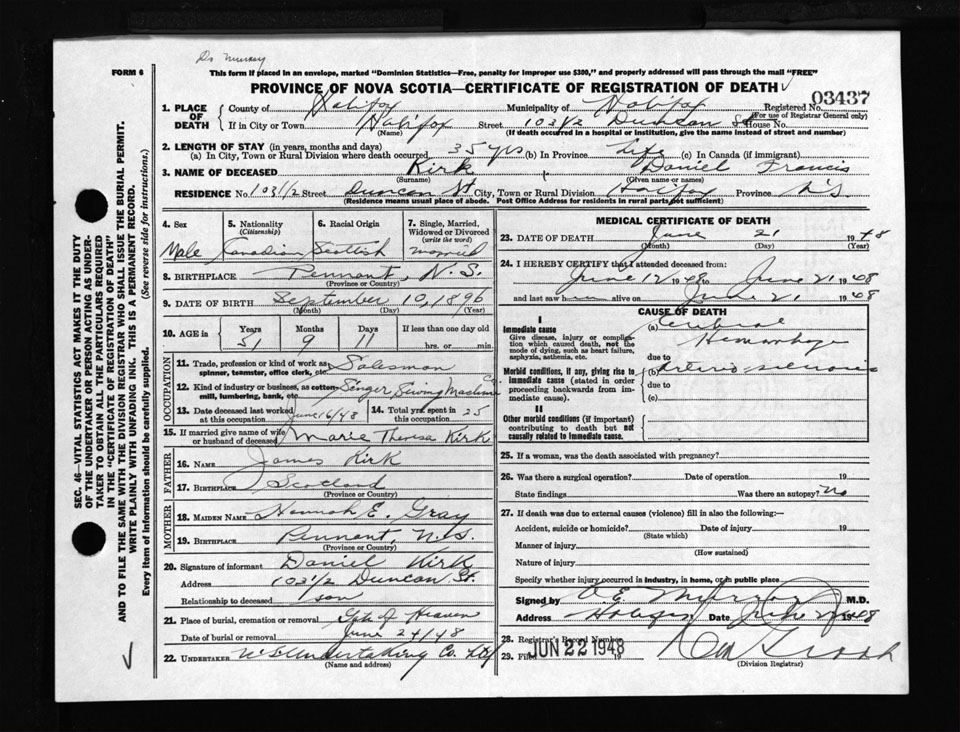 Dr Murray
FORM 6
This form if placed in an envelope, marked "Dominion Statistics—Free, penalty for improper use $300," and properly addressed will pass through the mail "FREE"
PROVINCE OF NOVA SCOTIA—CERTIFICATE OF REGISTRATION OF DEATH
03437
1. PLACE OF DEATH
County of Halifax Municipality of Halifax Registered No.
(For use of Registrar General only)
If in City or Town Halifax Street 103 1/2 Duncan St House No.
(Name) (If death occurred in a hospital or institution, give the name instead of street and number)
2. LENGTH OF STAY (in years, months and days)
(a) In City, Town or Rural Division where death occurred 35 yrs (b) In Province Life (c) In Canada (if immigrant)
3. NAME OF DECEASED Kirk Daniel Francis
(Surname) (Given name or names)
RESIDENCE No. 103 1/2 Street Duncan St City, Town or Rural Division Halifax Province N.S.
(Residence means usual place of abode. Post Office Address for residents in rural parts not sufficient)
4. Sex 5. Nationality (Citizenship) 6. Racial Origin 7. Single, Married, Widowed or Divorced (write the word)
Male Canadian Scottish married
8. BIRTHPLACE Pennant, N.S.
(Province or Country)
9. DATE OF BIRTH September 10, 1896
(Month) (Day) (Year)
10. AGE in Years Months Days If less than one day old
51 9 11 hrs. or min.
OCCUPATION
11. Trade, profession or kind of work as spinner, teamster, office clerk, etc. Salesman
12. Kind of industry or business, as cotton-mill, lumbering, bank, etc. Singer Swing Machine Co.
13. Date deceased last worked at this occupation June 16/48 14. Total yrs. spent in this occupation 25
15. If married give name of wife or husband of deceased Marie Theresa Kirk
FATHER
16. NAME James Kirk
17. BIRTHPLACE Scotland
(Province or Country)
MOTHER
18. MAIDEN NAME Hannah E. Gray
19. BIRTHPLACE Pennant, N.S.
(Province or Country)
20. Signature of informant Daniel Kirk
Address 103 1/2 Duncan St.
Relationship to deceased son
21. Place of burial, cremation or removal Gate of Heaven
Date of burial or removal June 24/48
22. UNDERTAKER N S Undertaking Co. Ltd
(Name and address)
MEDICAL CERTIFICATE OF DEATH
23. DATE OF DEATH June 21 1948
(Month) (Day) (Year)
24. I HEREBY CERTIFY that I attended deceased from:
June 12 1948 to June 21 1948
and last saw h im alive on June 21 1948
CAUSE OF DEATH
I
Immediate cause
Give disease, injury or complication which caused death, not the mode of dying, such as heart failure, asphyxia, asthenia, etc.
(a) Cerebral Hemorrhage
due to
Morbid conditions, if any, giving rise to immediate cause (stated in order proceeding backwards from immediate cause).
(b) Arterio sclerosis
due to
(c)
II
Other morbid conditions (if important) contributing to death but not causally related to immediate cause.
25. If a woman, was the death associated with pregnancy?
26. Was there a surgical operation? Date of operation 19
State findings Was there an autopsy? No
27. If death was due to external causes (violence) fill in also the following:—
Accident, suicide or homicide? Date of injury 19
(State which)
Manner of injury
(How sustained)
Nature of injury
Specify whether injury occurred in industry, in home, or in public place
Signed by Murray M.D.
Address Halifax Date June 1948
28. Registrar's Record Number
29. Filed JUN 22 1948 19
(Division Registrar)
SEC. 46—VITAL STATISTICS ACT MAKES IT THE DUTY
OF THE UNDERTAKER OR PERSON ACTING AS UNDER-
TAKER TO OBTAIN ALL THE PARTICULARS REQUIRED
IN THE "CERTIFICATE OF REGISTRATION OF DEATH"
AND TO FILE THE SAME WITH THE DIVISION REGISTRAR WHO SHALL ISSUE THE BURIAL PERMIT.
WRITE PLAINLY WITH UNFADING INK. THIS IS A PERMANENT RECORD.
Every item of information should be carefully supplied. (See reverse side for instructions.)